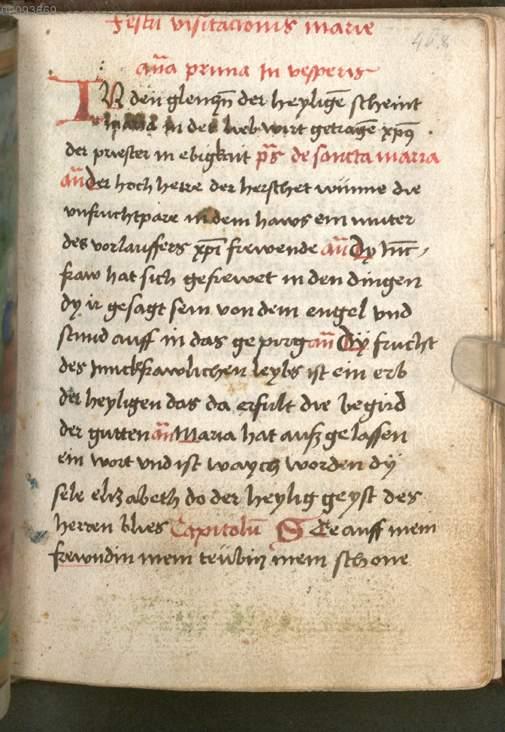 00093669
468
Festū visitacionis marie
aña prima in vesperis
IN den glenczn̄ der heyligē scheint
maria in der lieb wirt getragē xp̄s
der priester in ebigkait p̄s de sancta maria
an̄ der hoch herre der herschet wūnne die
vnfruchtpare in dem haws ein muter
des vorlauffers xp̄i frewende an̄ Dy
fraw hat sich gefrewet in den dingen
dy ir gesagt sein von dem engel vnd
stund auff in das gepirg an̄ Dy frucht
des Junckfrawlichen leybs ist ein erb
der heyligen das da erfult die begird
der gutten an̄ Maria hat aufz gelassen
ein wort vnd ist waych worden dy
sele elizabeth do der heylig geyst des
herren blies Capitolū Stee auff mein
frewndin mein teubin mein schone